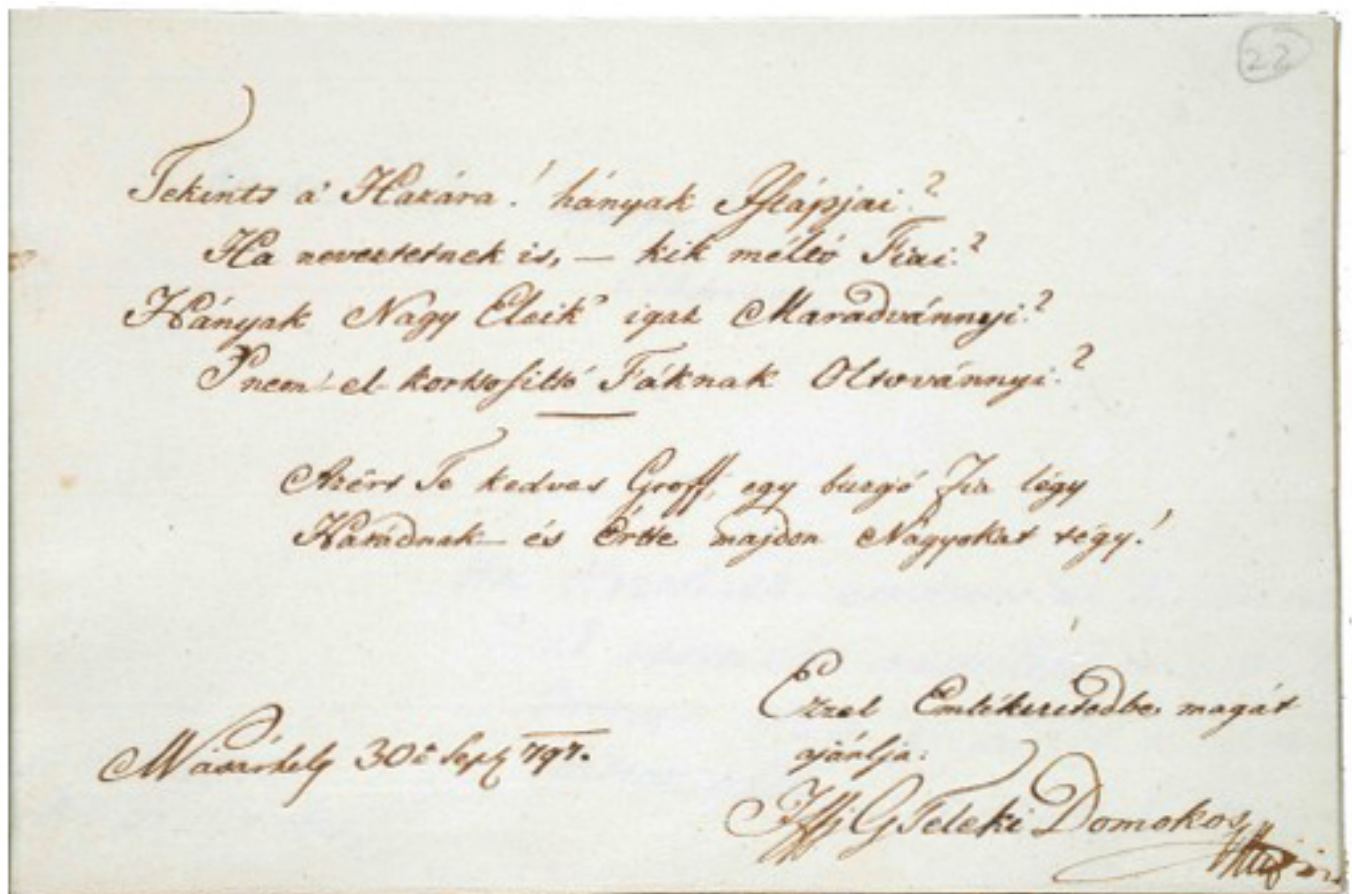 22
Tekints a' Hazára! hányak Istápjai?
Ha neveztetnek is, — kik méltó Fiai?
Hányak Nagy Eleik' igaz Maradvánnyi?
S nem el-kortsosittó Fáknak Oltoványnyi?
Azért Te kedves Groff, egy buzgó Fia légy
Hazádnak — és Értte majdon Nagyokat tégy!
Ezzel Emlékezetedbe magát
ajánlja:
MVásárhely 30a Sept 797.
Iffj G Teleki Domokos